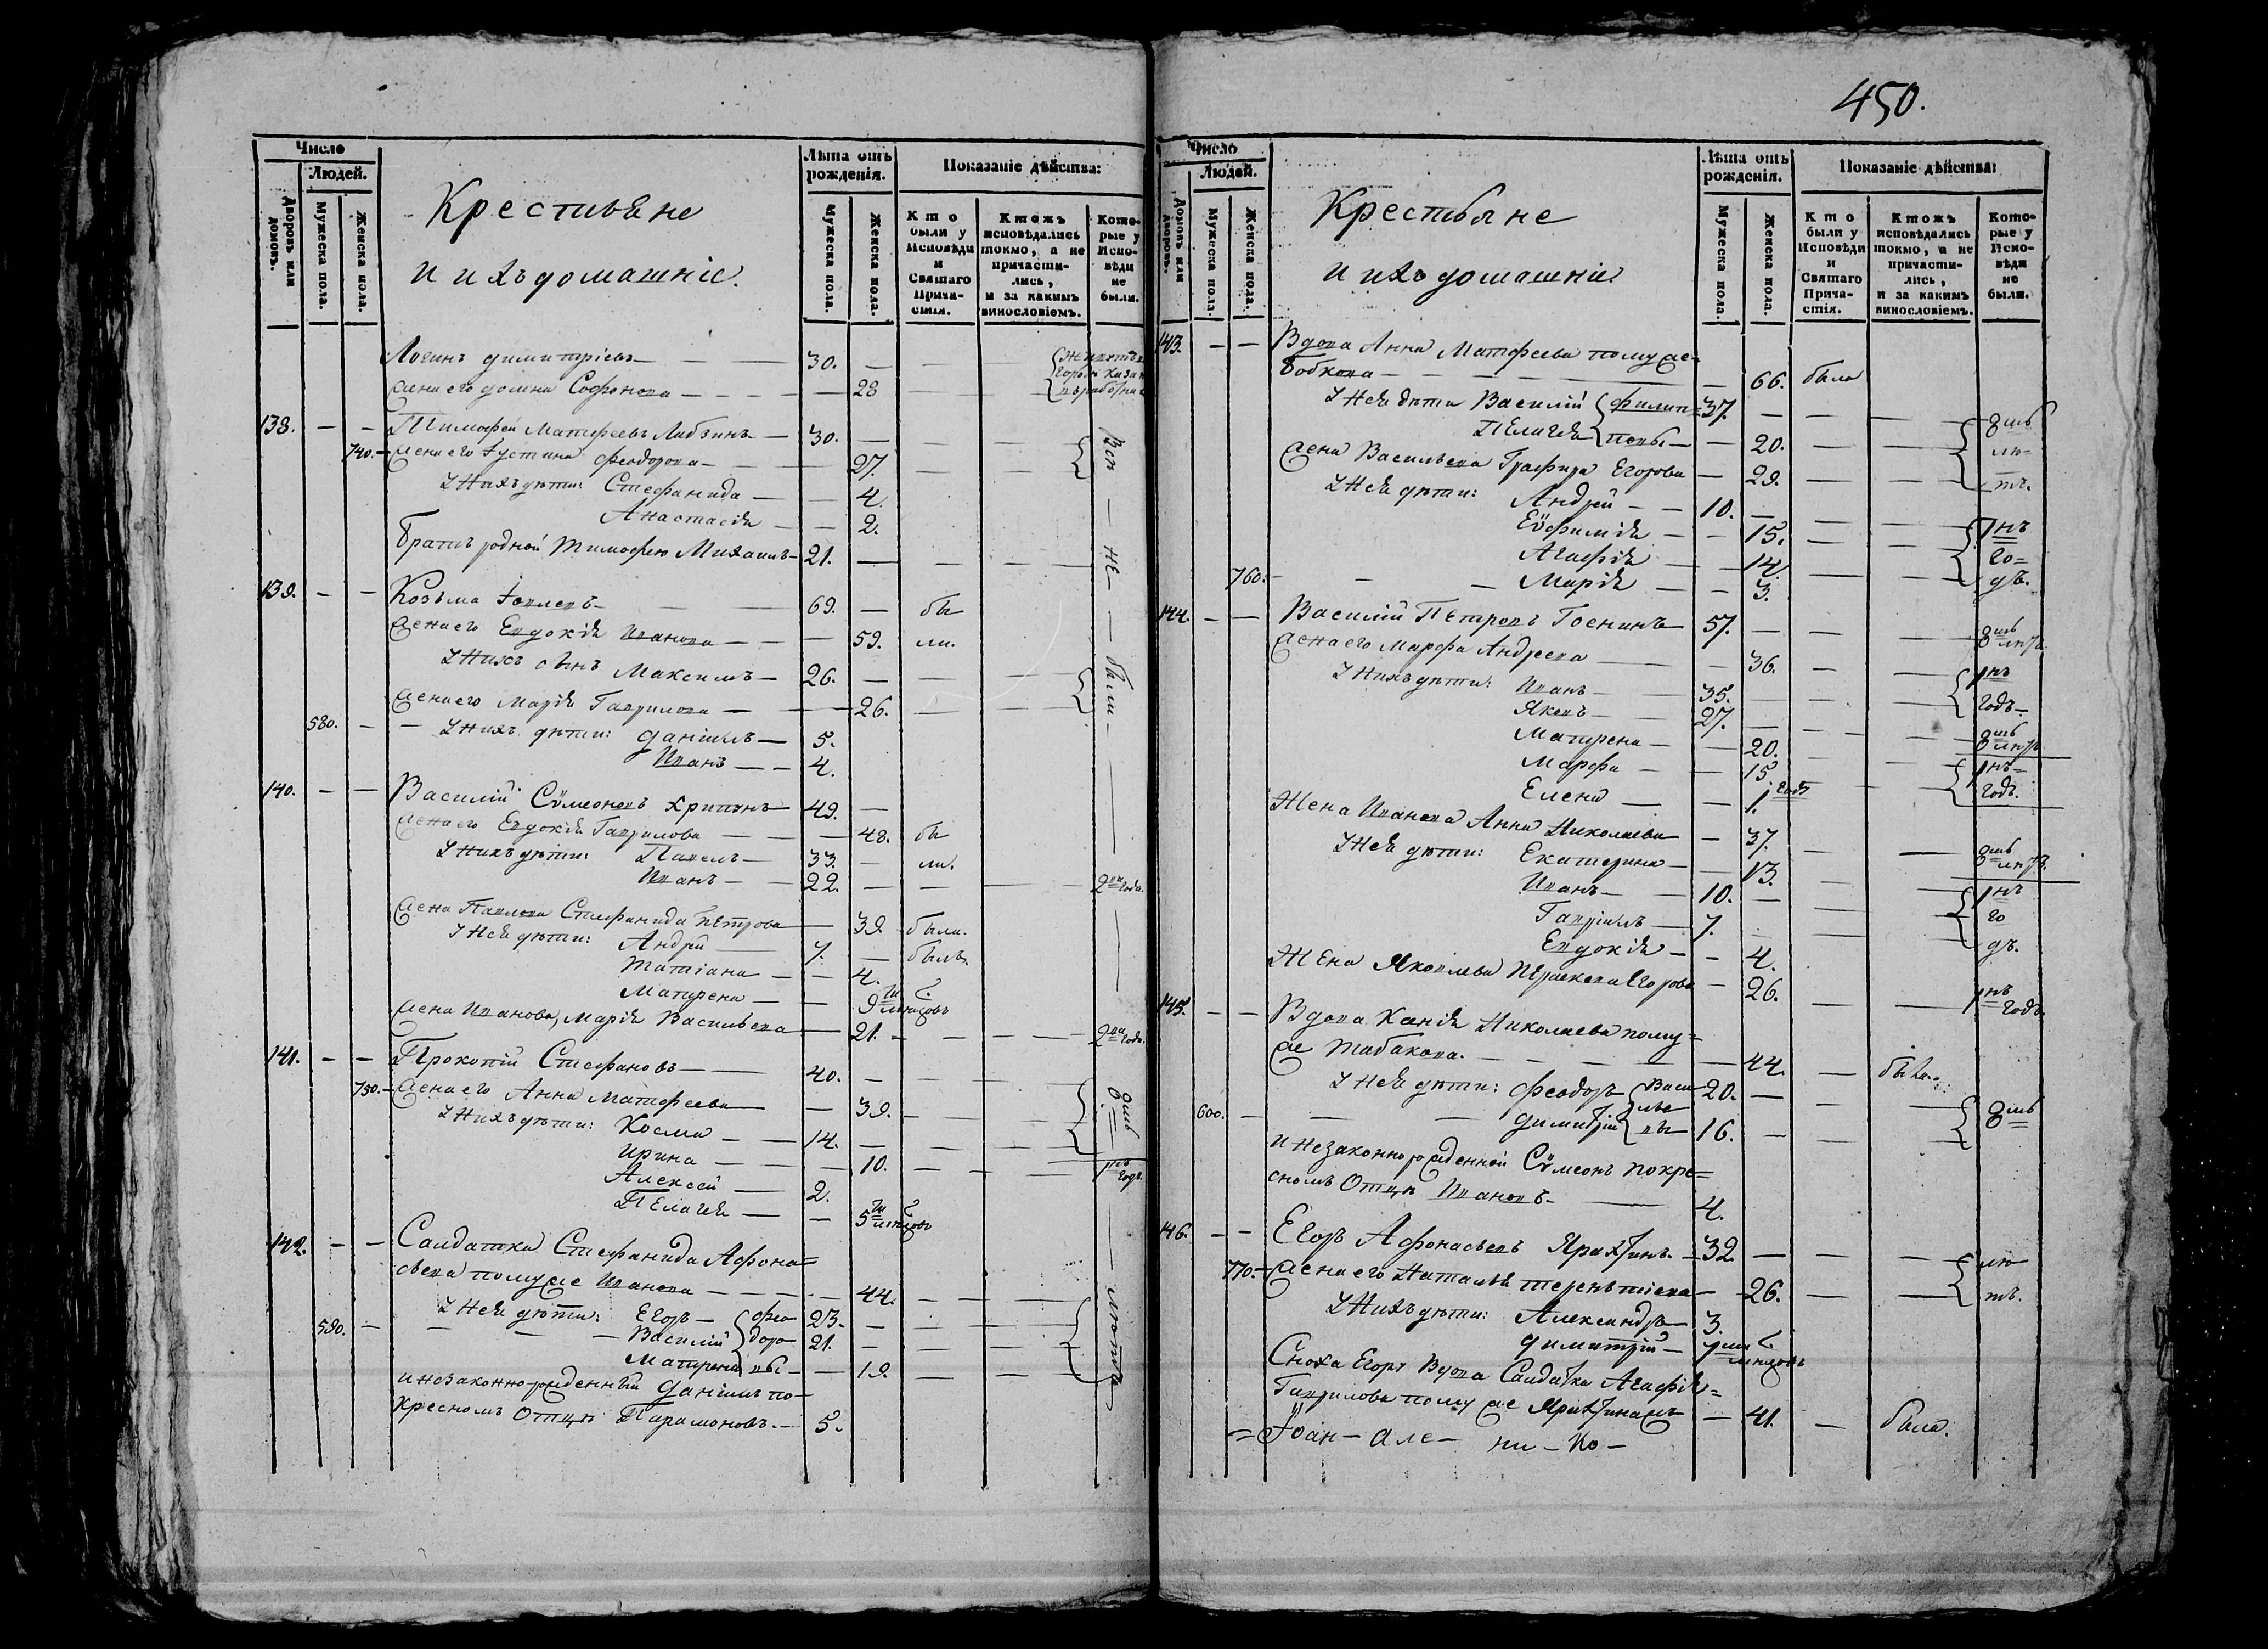 450.
Число
Людей.
Дворовъ или домовъ.
Мужеска пола.
Женска пола.
Крестьяне
и ихъ домашніе.
Лѣта отъ рожденія.
Мужеска пола.
Женска пола.
Показаніе дѣйства:
Кто были у Исповѣди и Святаго Прича- стія.
Ктожъ исповѣдались токмо, а не причасти- лись, и за какимъ винословіемъ.
Кото- рые у Испо- вѣди не были.
Логинъ Димитріевъ — 30.
Жена его Домна Софонова — 28
138. — — Тимофей Матфеевъ Лабзинъ — 30. Всѣ
740. — Жена его Іустина Феодорова — 27.
У нихъ дѣти: Стефанида — 4.
Анастасія — 2.
Братъ родной Тимофею Михаилъ — 21. — не
139. — — Козьма Іовлевъ — 69. — бы
Жена его Евдокія Иванова — 59. ли. — были
У нихъ сынъ Максимъ — 26.
Жена его Марія Гаврилова — 26.
580. — — У нихъ дѣти: Даніилъ — 5.
Иванъ — 4.
140. — — Василій Сѵмеоновъ — 49.
Жена его Евдокія Гаврилова — 48. бы
У нихъ дѣти: Павелъ — 33. — ли.
Иванъ — 22. — 2ва года.
Жена Павлова Стефанида Петрова — 39. была.
У нея дѣти: Андрей — 7. — былъ.
Татіана — 4.
Матрена — 9ти мѣсяцовъ
Жена Иванова, Марія Васильева — 21. — 2ва года.
141. — — Прокопій Стефановъ — 40.
750. — Жена его Анна Матфеева — 39. — 8мь
У нихъ дѣти: Косма — 14.
Ирина — 10. — 1нъ годъ.
Алексей — 2.
Пелагея — 5ти мѣсяцовъ
142. — — Салдатка Стефанида Афона=
сьева по мужѣ Иванова — 44.
У нея дѣти: Егоръ — Фео 23.
590. — Василій доро 21. — лѣтъ
Матрена вы — 19.
и незаконнорожденный Даніилъ по-
кресномъ Отцѣ Парамоновъ. — 5.
Число
Людей.
Домовъ или дворовъ.
Мужеска пола.
Женска пола.
Крестьяне
и ихъ домашніе
Лѣта отъ рожденія.
Мужеска пола.
Женска пола.
Показаніе дѣйства:
Кто были у Исповѣди и Святаго Прича- стія.
Ктожъ исповѣдались токмо, а не причасти- лись, и за какимъ винословіемъ.
Кото- рые у Испо- вѣди не были.
143. — — Вдова Анна Матфеева по мужѣ
Бобкова — 66. была
У нея дѣти Василій Филип= 37. — 8мь
Пелагея повы — 20. лѣ=
Жена Васильева Глафира Егорова — 29. тъ.
У нея дѣти: Андрей — 10.
Еѵфимія — 15. 1нъ
Агафія — 14. го=
760. — Марія — 3. дъ.
144. — — Василій Петровъ Госнинъ 57. — 8мь лѣтъ.
Жена его Марфа Андреева — 36. 1нъ
У нихъ дѣти: Иванъ — 35. годъ.
Яковъ — 27.
Матрена — 20. 8мь лѣтъ
Марфа — 15. 1нъ=
Елена — 1. годъ годъ.
Жена Иванова Анна Николаева — 37.
У нея дѣти: Екатерина — 13. 8мь лѣтъ.
Иванъ — 10. 1нъ
Гавріилъ — 7. го
Евдокія — 4. дъ.
Жена Яковлева Параскева Егорова — 26. — 1нъ годъ.
145. — — Вдова Ксенія Николаева по му=
же Табакова. — 44. — была.
У нея дѣти: Феодоръ Васи 20.
600. — Димитрій лье вы 16. — 8мь
и незаконнорожденной Сѵмеонъ по кре=
сномъ Отцѣ Ивановъ — 4.
146. — — Егоръ Афонасьевъ — 32 — лѣ
770. — Жена его Наталья Терентіева — 26. — тъ.
У нихъ дѣти: Александръ 3.
Димитрій — 7ми мѣсяцовъ
Сноха Егору Вдова Салдатка Агафія=
Гаврилова по мужѣ — 41. — была.
= Іоан — але — ни — ко —